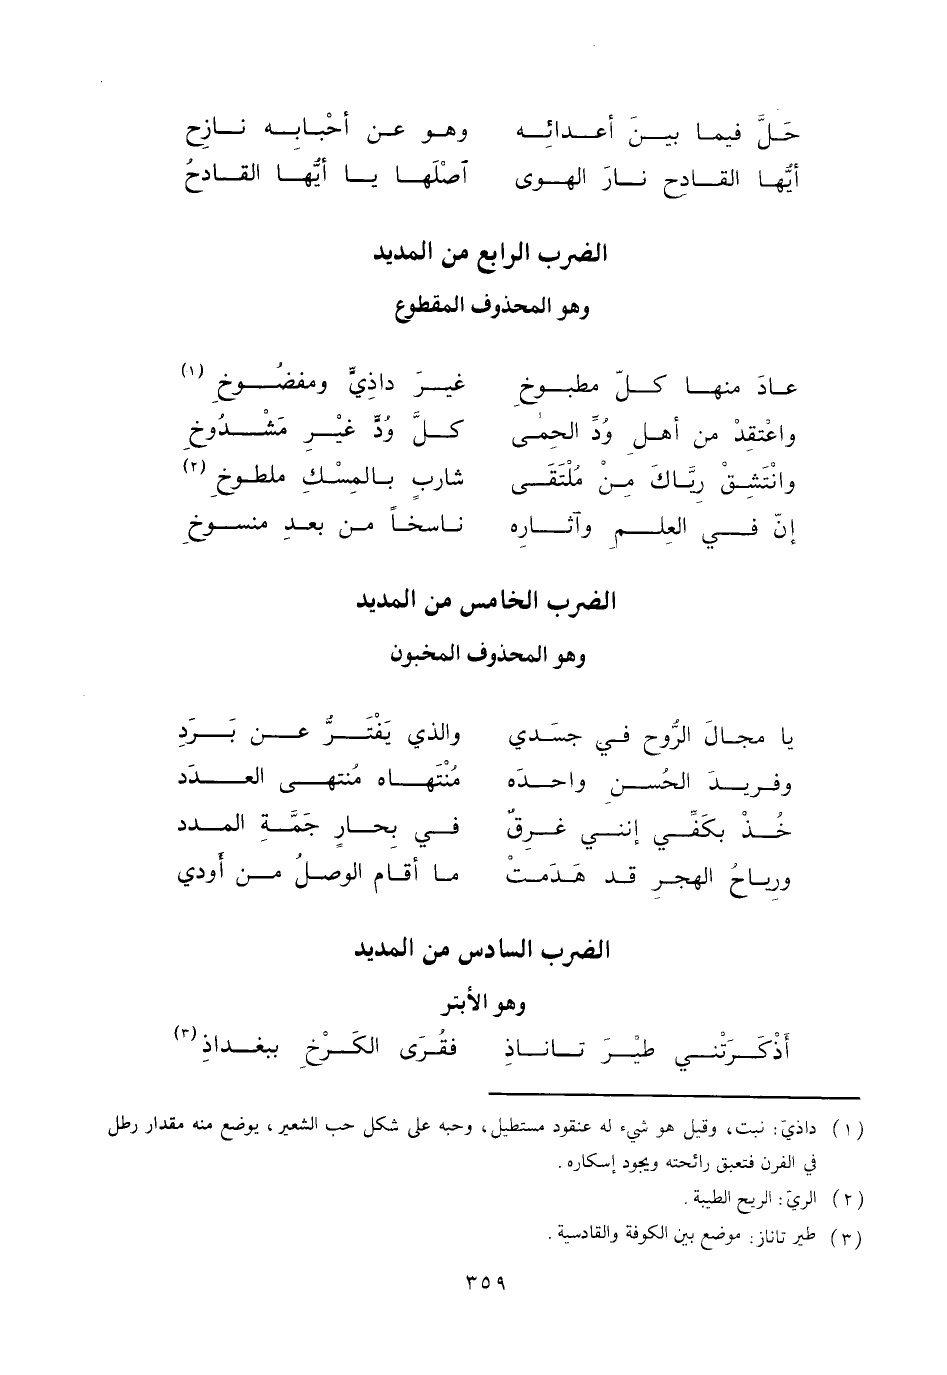 حَلَّ فيما بينَ أعدائه وهو عن أحْبابه نازح
أيُّها القادح نارَ الهوى آصْلَها يا أيُّها القادحُ
الضرب الرابع من المديد
وهو المحذوف المقطوع
عادَ منها كلّ مطبوخِ غيرَ داذِيٍّ ومفضُوخِ (١)
واعْتقِدْ من أهل وُدِّ الحمٰى كلَّ وُدٍّ غيْرِ مَشْدُوخِ
وانْتَشِقْ ريَّاكَ مِنْ مُلْتَقَى شاربٍ بالمِسْك ملطوخِ (٢)
إنّ في العلمِ وآثاره ناسخاً من بعدِ منسوخِ
الضرب الخامس من المديد
وهو المحذوف المخبون
يا مجالَ الرُّوحِ في جسَدي والذي يَفْتَرُّ عن بَرَدِ
وفريدَ الحُسنِ واحدَه مُنْتَهاه مُنتهى العدَدِ
خُذْ بكَفِّي إنني غرِقٌ في بحارٍ جَمَّةِ المدد
ورياحُ الهجرِ قد هَدَمتْ ما أقام الوصلُ من أَودي
الضرب السادس من المديد
وهو الأبتر
أَذْكَرَتْني طيْرَ تاناذِ فقُرَى الكَرْخِ ببغداذِ (٣)
(١) داذيّ: نبت، وقيل هو شيء له عنقود مستطيل، وحبه على شكل حب الشعير، يوضع منه مقدار رطل
في الفرن فتعبق رائحته ويجود إسكاره.
(٢) الريّ: الريح الطيبة.
(٣) طير تاناز: موضع بين الكوفة والقادسية.
٣٥٩